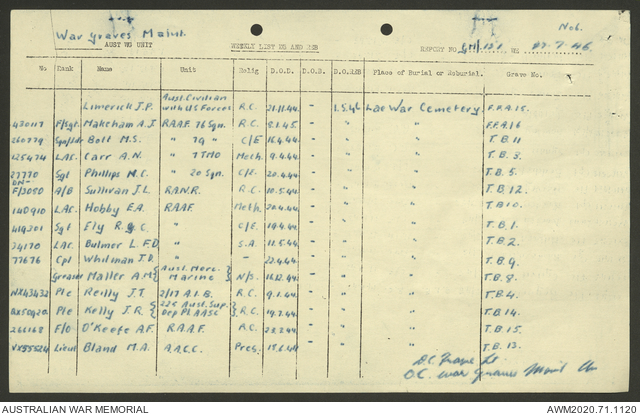 War Graves Maint. No 6.
AUST WG UNIT WEEKLY LIST DB AND REB REPORT No. 27.7.46
No Rank Name Unit Relig D.O.D. D.O.B. D.OREB Place of Burial or Reburial. Grave No.
Limerick J.P. Aust. Civilian with U.S Forces R.C. 21.11.44 " 1.5.46 Lae War Cemetery F.F.A.15.
430117 F/Sgt. Makeham A.J. R.A.A.F. 76 Sqn. R.C. 8.1.45. " " F.F.A.16
260779 Sqn/Ldr Bott M.S. " 79 " C/E 16.4.44 " " T.B. 11
125474 LAC. Carr A.N. " 7 TMO Meth. 9.4.44 " " T.B. 3.
27770 Sgt Phillips M.C. " 20 Sqn. C/E. 19.4.44 " " T.B. 5.
F/3050 A/B Sullivan J.L. R.A.N.R. R.C. 10.5.44 " " T.B. 12.
140910 LAC. Hobby E.A. R.A.A.F. Meth. 20.4.44 " " T.B. 10.
419201 Sgt Ely R.G.C. " C/E. 19.4.44 " " T.B. 1.
34170 LAC. Bulmer L.F.D. " S.A. 11.5.44 " " T.B. 2.
77676 Cpl Whitman J.D. " — 22.4.44 " " T.B. 9.
Greaser Maller A.M. Aust. Merc. Marine N/S. 16.12.44 " " T.B. 8.
NX43432 Pte Reilly J.T. 2/17 A.I.B. R.C. 9.1.44 " " T.B. 4.
QX50920 Pte Kelly J.R. 225 Aust. Sup. Dep PL AASC R.C. 19.7.44 " " T.B. 14.
266168 F/O O'Keefe A.F. R.A.A.F. R.C. 28.2.44 " " T.B. 15.
VX55524 Lieut Bland M.A. A.A.C.C. Pres. 15.6.44 " " T.B. 13.
Lt.
O.C. War Graves Maint Un
AUSTRALIAN WAR MEMORIAL AWM2020.71.1120